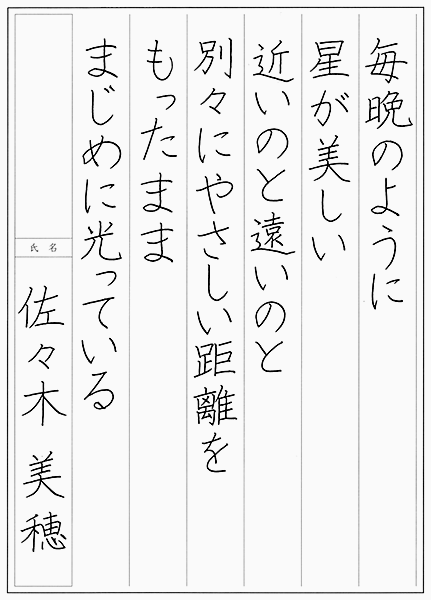 毎晩のように
星が美しい
近いのと遠いのと
別々にやさしい距離を
もったまま
まじめに光っている
氏名
佐々木美穂